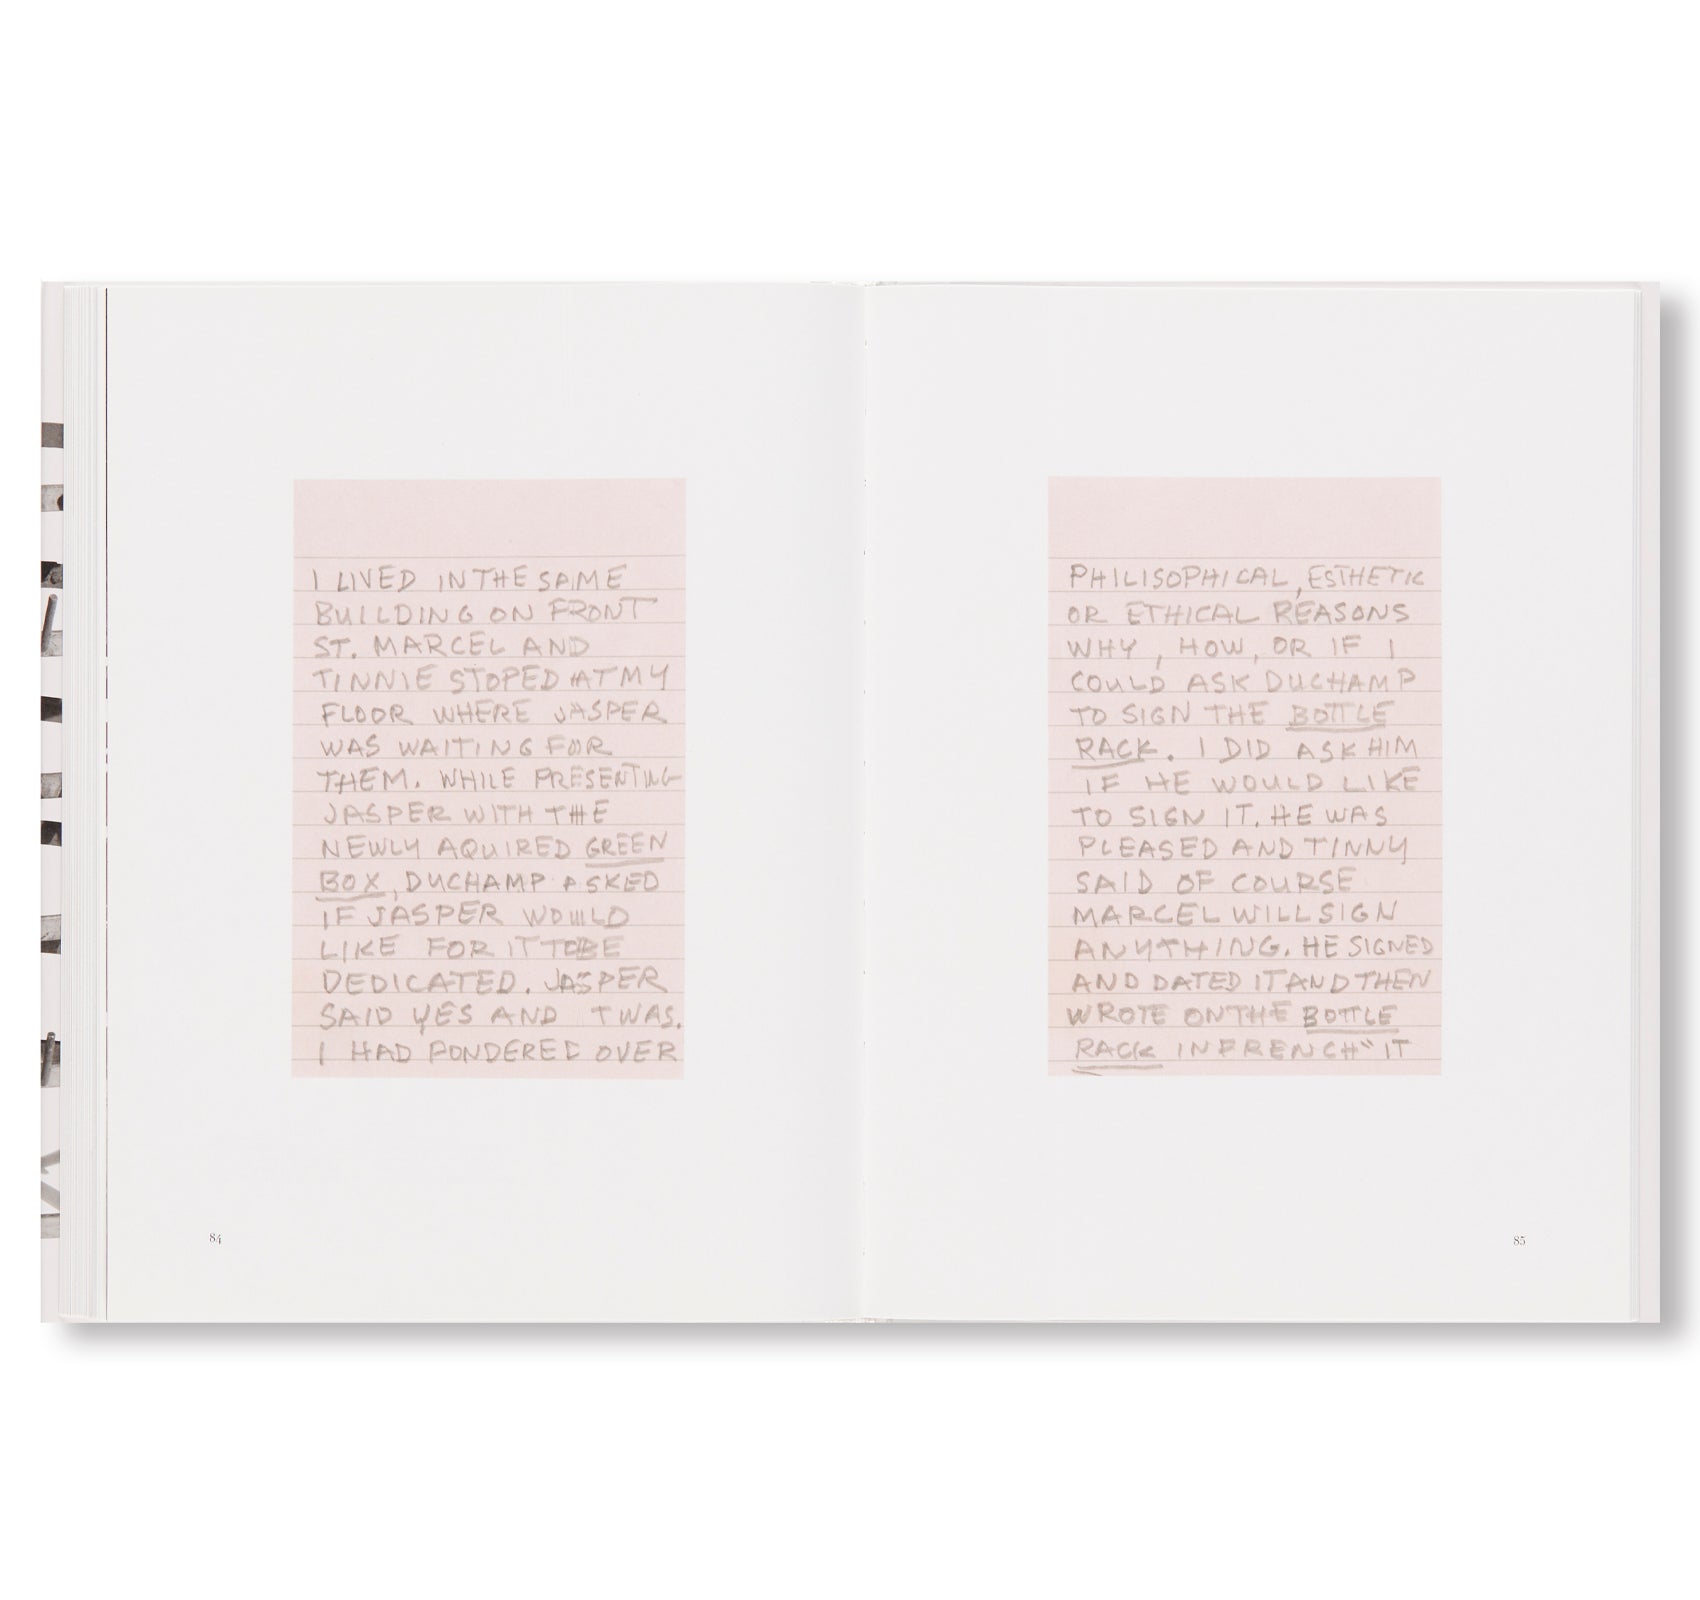 I LIVED IN THE SAME
BUILDING ON FRONT
ST. MARCEL AND
TINNIE STOPED AT MY
FLOOR WHERE JASPER
WAS WAITING FOR
THEM. WHILE PRESENTING
JASPER WITH THE
NEWLY AQUIRED GREEN
BOX, DUCHAMP ASKED
IF JASPER WOULD
LIKE FOR IT TO BE
DEDICATED. JASPER
SAID YES AND TWAS.
I HAD PONDERED OVER
84
PHILISOPHICAL, ESTHETIC
OR ETHICAL REASONS
WHY, HOW, OR IF I
COULD ASK DUCHAMP
TO SIGN THE BOTTLE
RACK. I DID ASK HIM
IF HE WOULD LIKE
TO SIGN IT. HE WAS
PLEASED AND TINNY
SAID OF COURSE
MARCEL WILL SIGN
ANYTHING. HE SIGNED
AND DATED IT AND THEN
WROTE ON THE BOTTLE
RACK IN FRENCH "IT
85